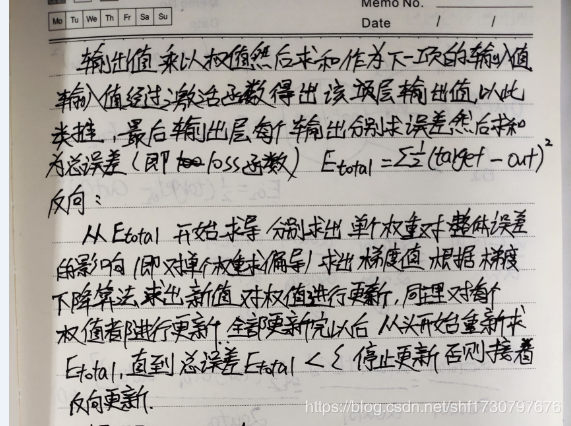 Memo No.
Mo Tu We Th Fr Sa Su
Date / /
输出值乘以权值然后求和作为下一项的输入值
输入值经过激活函数得出该项层输出值以此
类推，最后输出层每个输出分别求误差然后求和
为总误差（即 loss函数） Etotal = Σ½(target - out)²
反向：
从Etotal 开始求导 分别求出单个权重对整体误差
的影响（即对单个权重求偏导）求出梯度值 根据梯度
下降算法 求出新值 对权值进行更新，同理对每个
权值都进行更新，全部更新完以后 从头开始重新求
Etotal，直到总误差Etotal < ξ 停止更新 否则接着
反向更新.
https://blog.csdn.net/shf1730797676